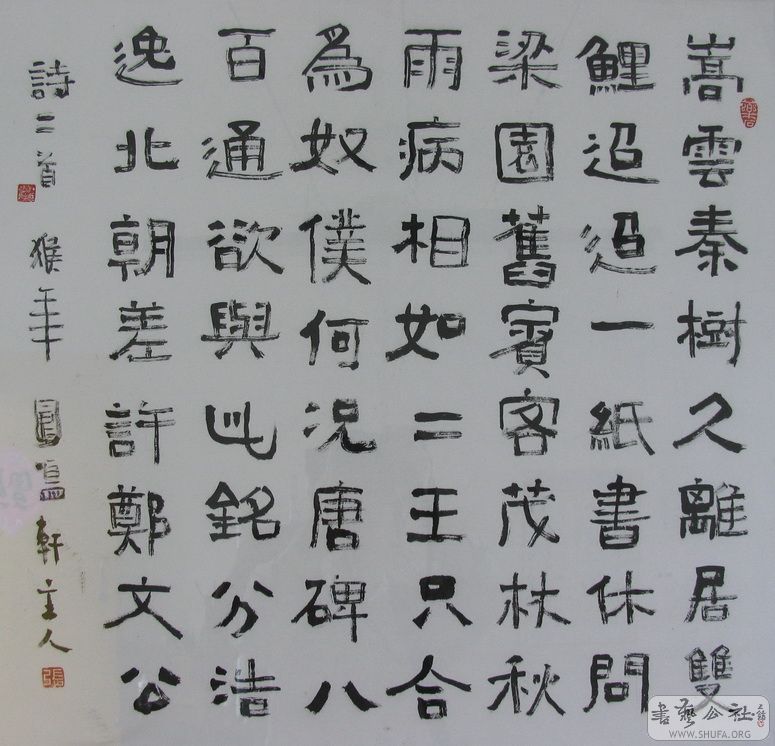 嵩雲秦樹久離居雙
鯉迢迢一紙書休問
梁園舊賓客茂林秋
雨病相如二王只合
爲奴僕何況唐碑八
百通欲與此銘分浩
逸北朝差許鄭文公
詩二首 猴年 軒主人
張
書藝公社
WWW.SHUFA.ORG